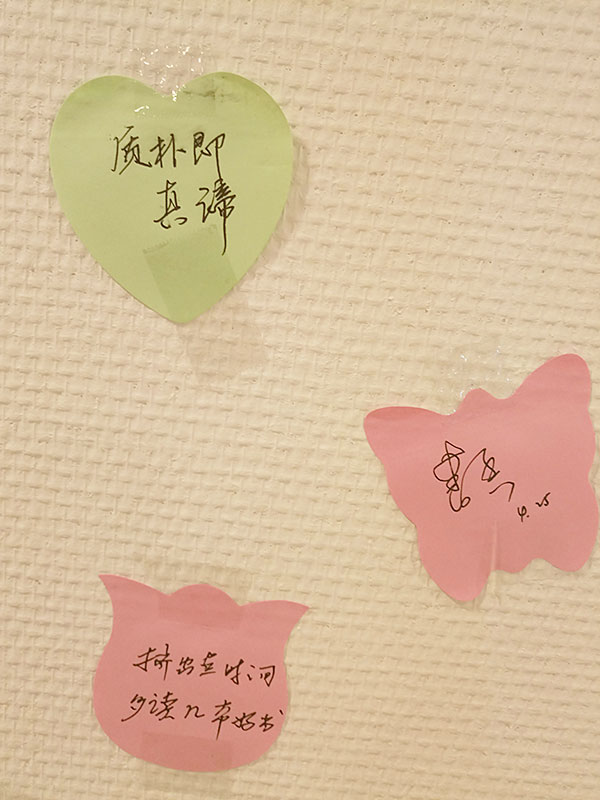 质朴即
真谛
4.25
挤出点时间
多读几本好书